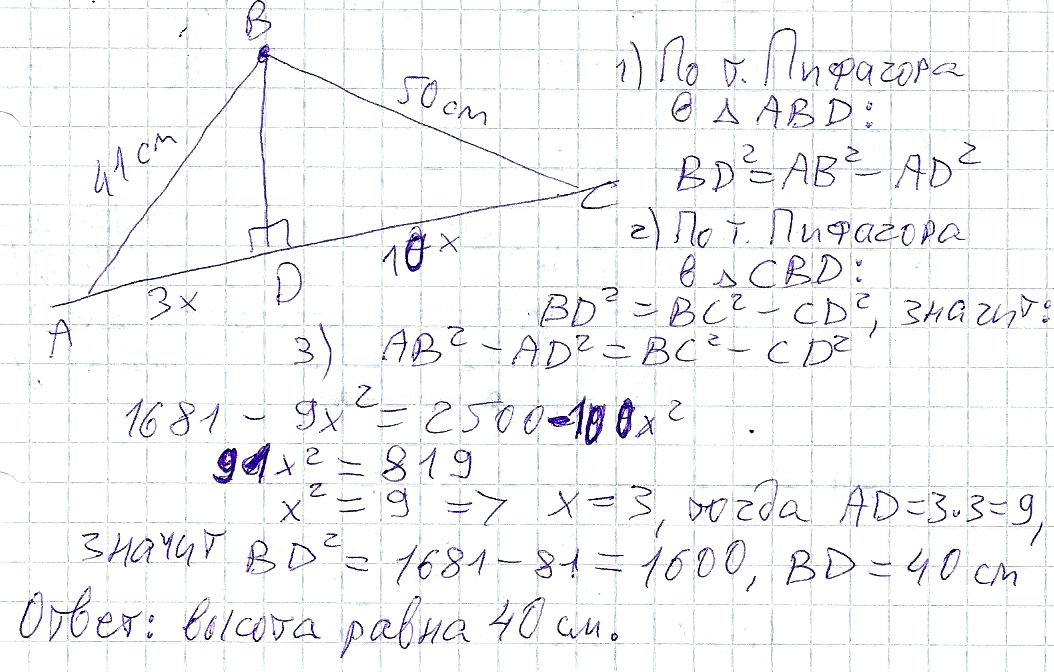 B
41 см
50 см
A
3x
D
10x
C
1) По т. Пифагора
в △ ABD:
BD² = AB² − AD²
2) По т. Пифагора
в △ CBD:
BD² = BC² − CD², значит:
3) AB² − AD² = BC² − CD²
1681 − 9x² = 2500 − 100x²
91x² = 819
x² = 9 => x = 3, тогда AD = 3·3 = 9,
значит BD² = 1681 − 81 = 1600, BD = 40 см
Ответ: высота равна 40 см.